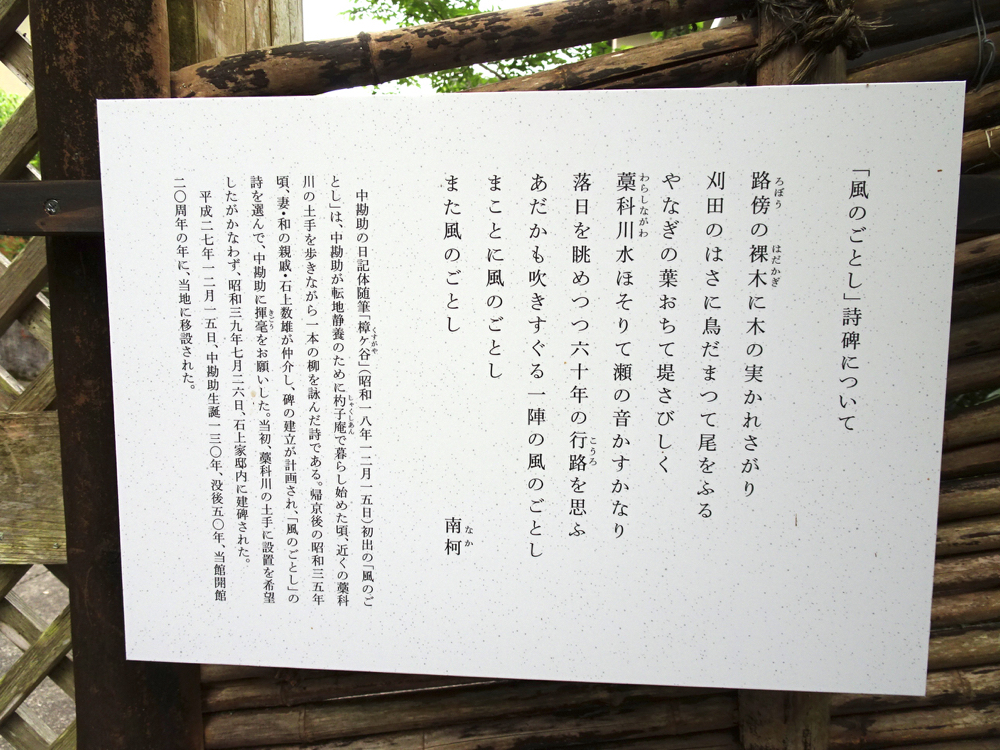 「風のごとし」詩碑について
路傍の裸木に木の実かれさがり
刈田のはさに鳥だまつて尾をふる
やなぎの葉おちて堤さびしく
藁科川水ほそりて瀬の音かすかなり
落日を眺めつつ六十年の行路を思ふ
あだかも吹きすぐる一陣の風のごとし
まことに風のごとし
また風のごとし
南柯
中勘助の日記体随筆「樟ヶ谷」（昭和一八年一二月一五日）初出の「風のご
とし」は、中勘助が転地静養のために杓子庵で暮らし始めた頃、近くの藁科
川の土手を歩きながら一本の柳を詠んだ詩である。帰京後の昭和三五年
頃、妻・和の親戚・石上数雄が仲介し、碑の建立が計画され、「風のごとし」の
詩を選んで、中勘助に揮毫をお願いした。当初、藁科川の土手に設置を希望
したがかなわず、昭和三九年七月二六日、石上家邸内に建碑された。
平成二七年一二月一五日、中勘助生誕一三〇年、没後五〇年、当館開館
二〇周年の年に、当地に移設された。